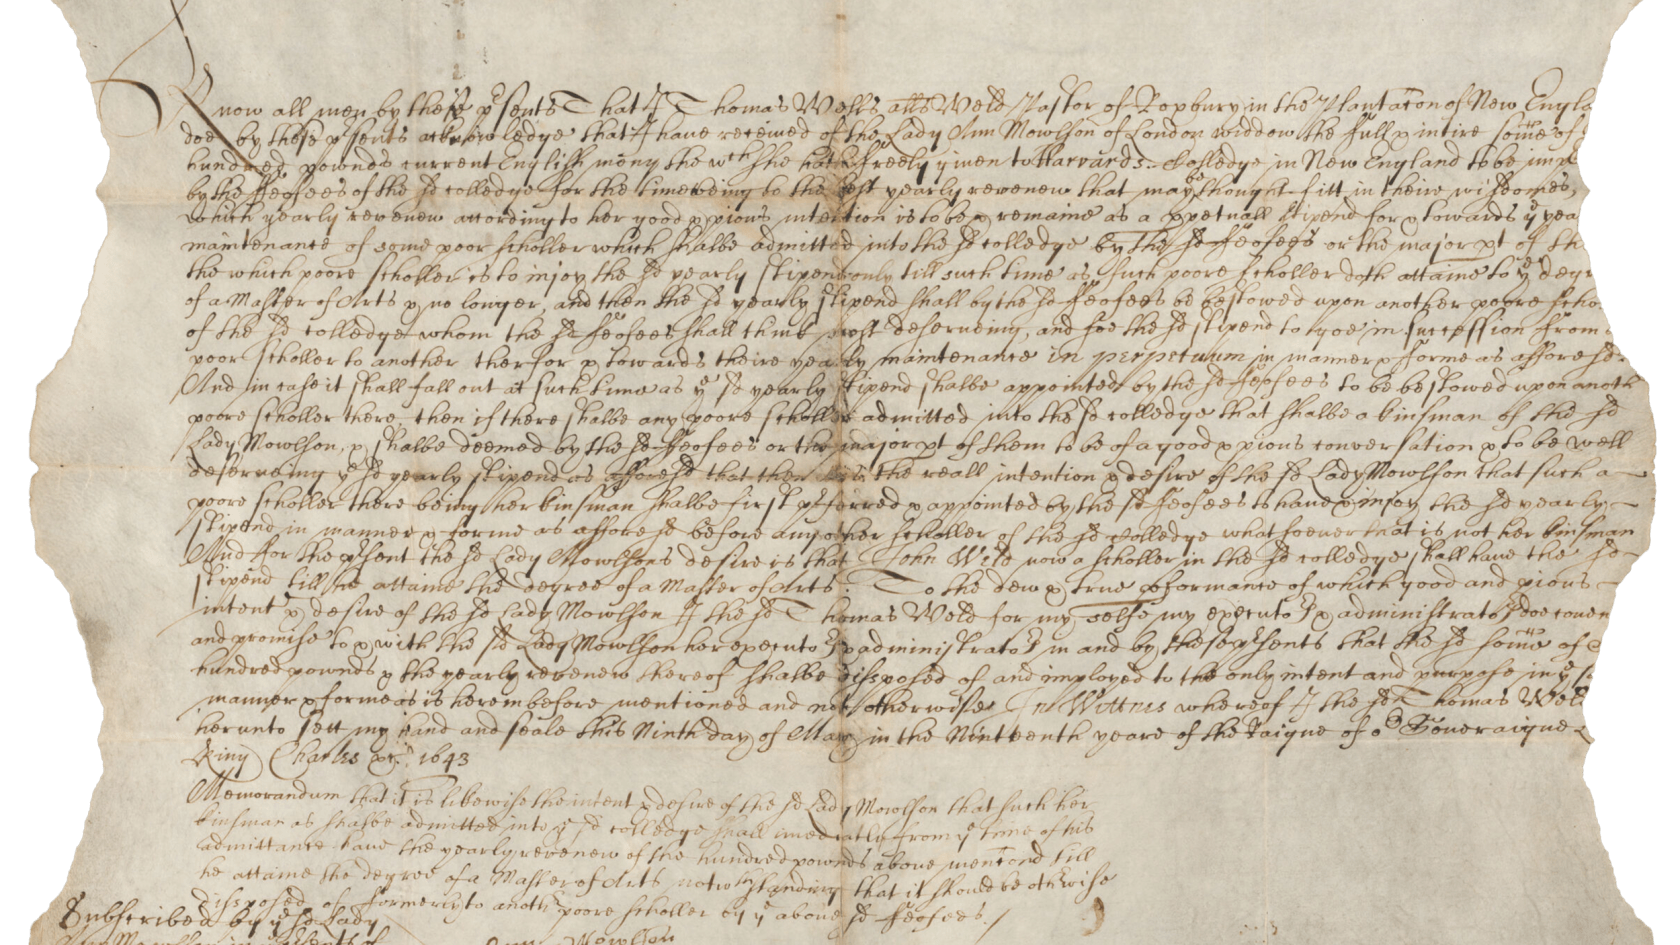 Know all men by these p^rsents That I Thomas Wells alīs Weld Pastor of Roxbury in the Plantac̄on of New Engla
doe by these p^rsents acknowledge that I have received of the Lady Ann Mowlson of London widdow the full & intire som̄e of
hundred pownds current English mony the w^ch she hath freely given to Harvards Colledge in New England to be impl
by the Feofees of the s^d colledge for the time being to the best yearly revenew that may be thought fitt in theire wisdomes,
which yearly revenew according to her good & pious intention is to be & remaine as a ppetuall stipend for & towards y^e yea
maintenance of some poor scholler which shalbe admitted into the s^d colledge by the s^d Feofees or the major pt of th
the which poore scholler is to injoy the s^d yearly stipend only till such time as such poore scholler doth attaine to y^e degr
of a Master of Arts & no longer, and then the s^d yearly stipend shall by the s^d Feofees be bestowed upon another poore scho
of the s^d colledge whom the s^d Feofees shall think most deserveing, and soe the s^d stipend to goe in succession from
poor scholler to another therfor & towards theire yearly maintenance in perpetuum in manner & forme as affore s^d.
And in case it shall fall out at such time as y^e s^d yearly stipend shalbe appointed by the s^d Feofees to be bestowed upon anoth
poore scholler there, then if there shalbe any poore scholler admitted into the s^d colledge that shalbe a kinsman of the s^d
Lady Mowlson, & shalbe deemed by the s^d Feofees or the major pt of them to be of a good & pious conversation & to be well
deserveing y^e s^d yearly stipend as affore s^d that then it is the reall intention & desire of the s^d Lady Mowlson that such a
poore scholler there being her kinsman shalbe first p^rferred & appointed by the s^d Feofees to have & injoy the s^d yearly
stipend in manner & forme as affore s^d before any other scholler of the s^d colledge whatsoever that is not her kinsman
And for the p^rsent the s^d Lady Mowlsons desire is that John Weld now a scholler in the s^d colledge shall have the s^d
stipend till he attaine the degree of a Master of Arts: To the dew & true pformance of which good and pious
intent & desire of the s^d Lady Mowlson I the s^d Thomas Weld for my selfe my executo^rs & administrato^rs doe coven
and promise to & with the s^d Lady Mowlson her executo^rs & administrato^rs in and by these p^rsents that the s^d som̄e of
hundred pownds & the yearly revenew thereof shalbe disposed of and imployed to the only intent and purpose in y^e
manner & forme as is herein before mentioned and not otherwise. In Wittnes whereof I the s^d Thomas Weld
herunto sett my hand and seale this Ninth day of May in the Ninteenth yeare of the Raigne of o^r Soveraigne
King Charles &c. 1643
Memorandum that it is likewise the intent & desire of the s^d Lady Mowlson that such her
kinsman as shalbe admitted into y^e s^d colledge shall imediatly from y^e time of his
admittance have the yearly revenew of the hundred pownds above menc̄ond till
he attaine the degree of a Master of Arts, notw^thstanding that it should be oth^rwise
disposed of formerly to anoth^r poore scholler by y^e above s^d Feofees./
Subscribed by y^e s^d Lady
Ann Mowlson in p^rsents of
Ann Mowlson